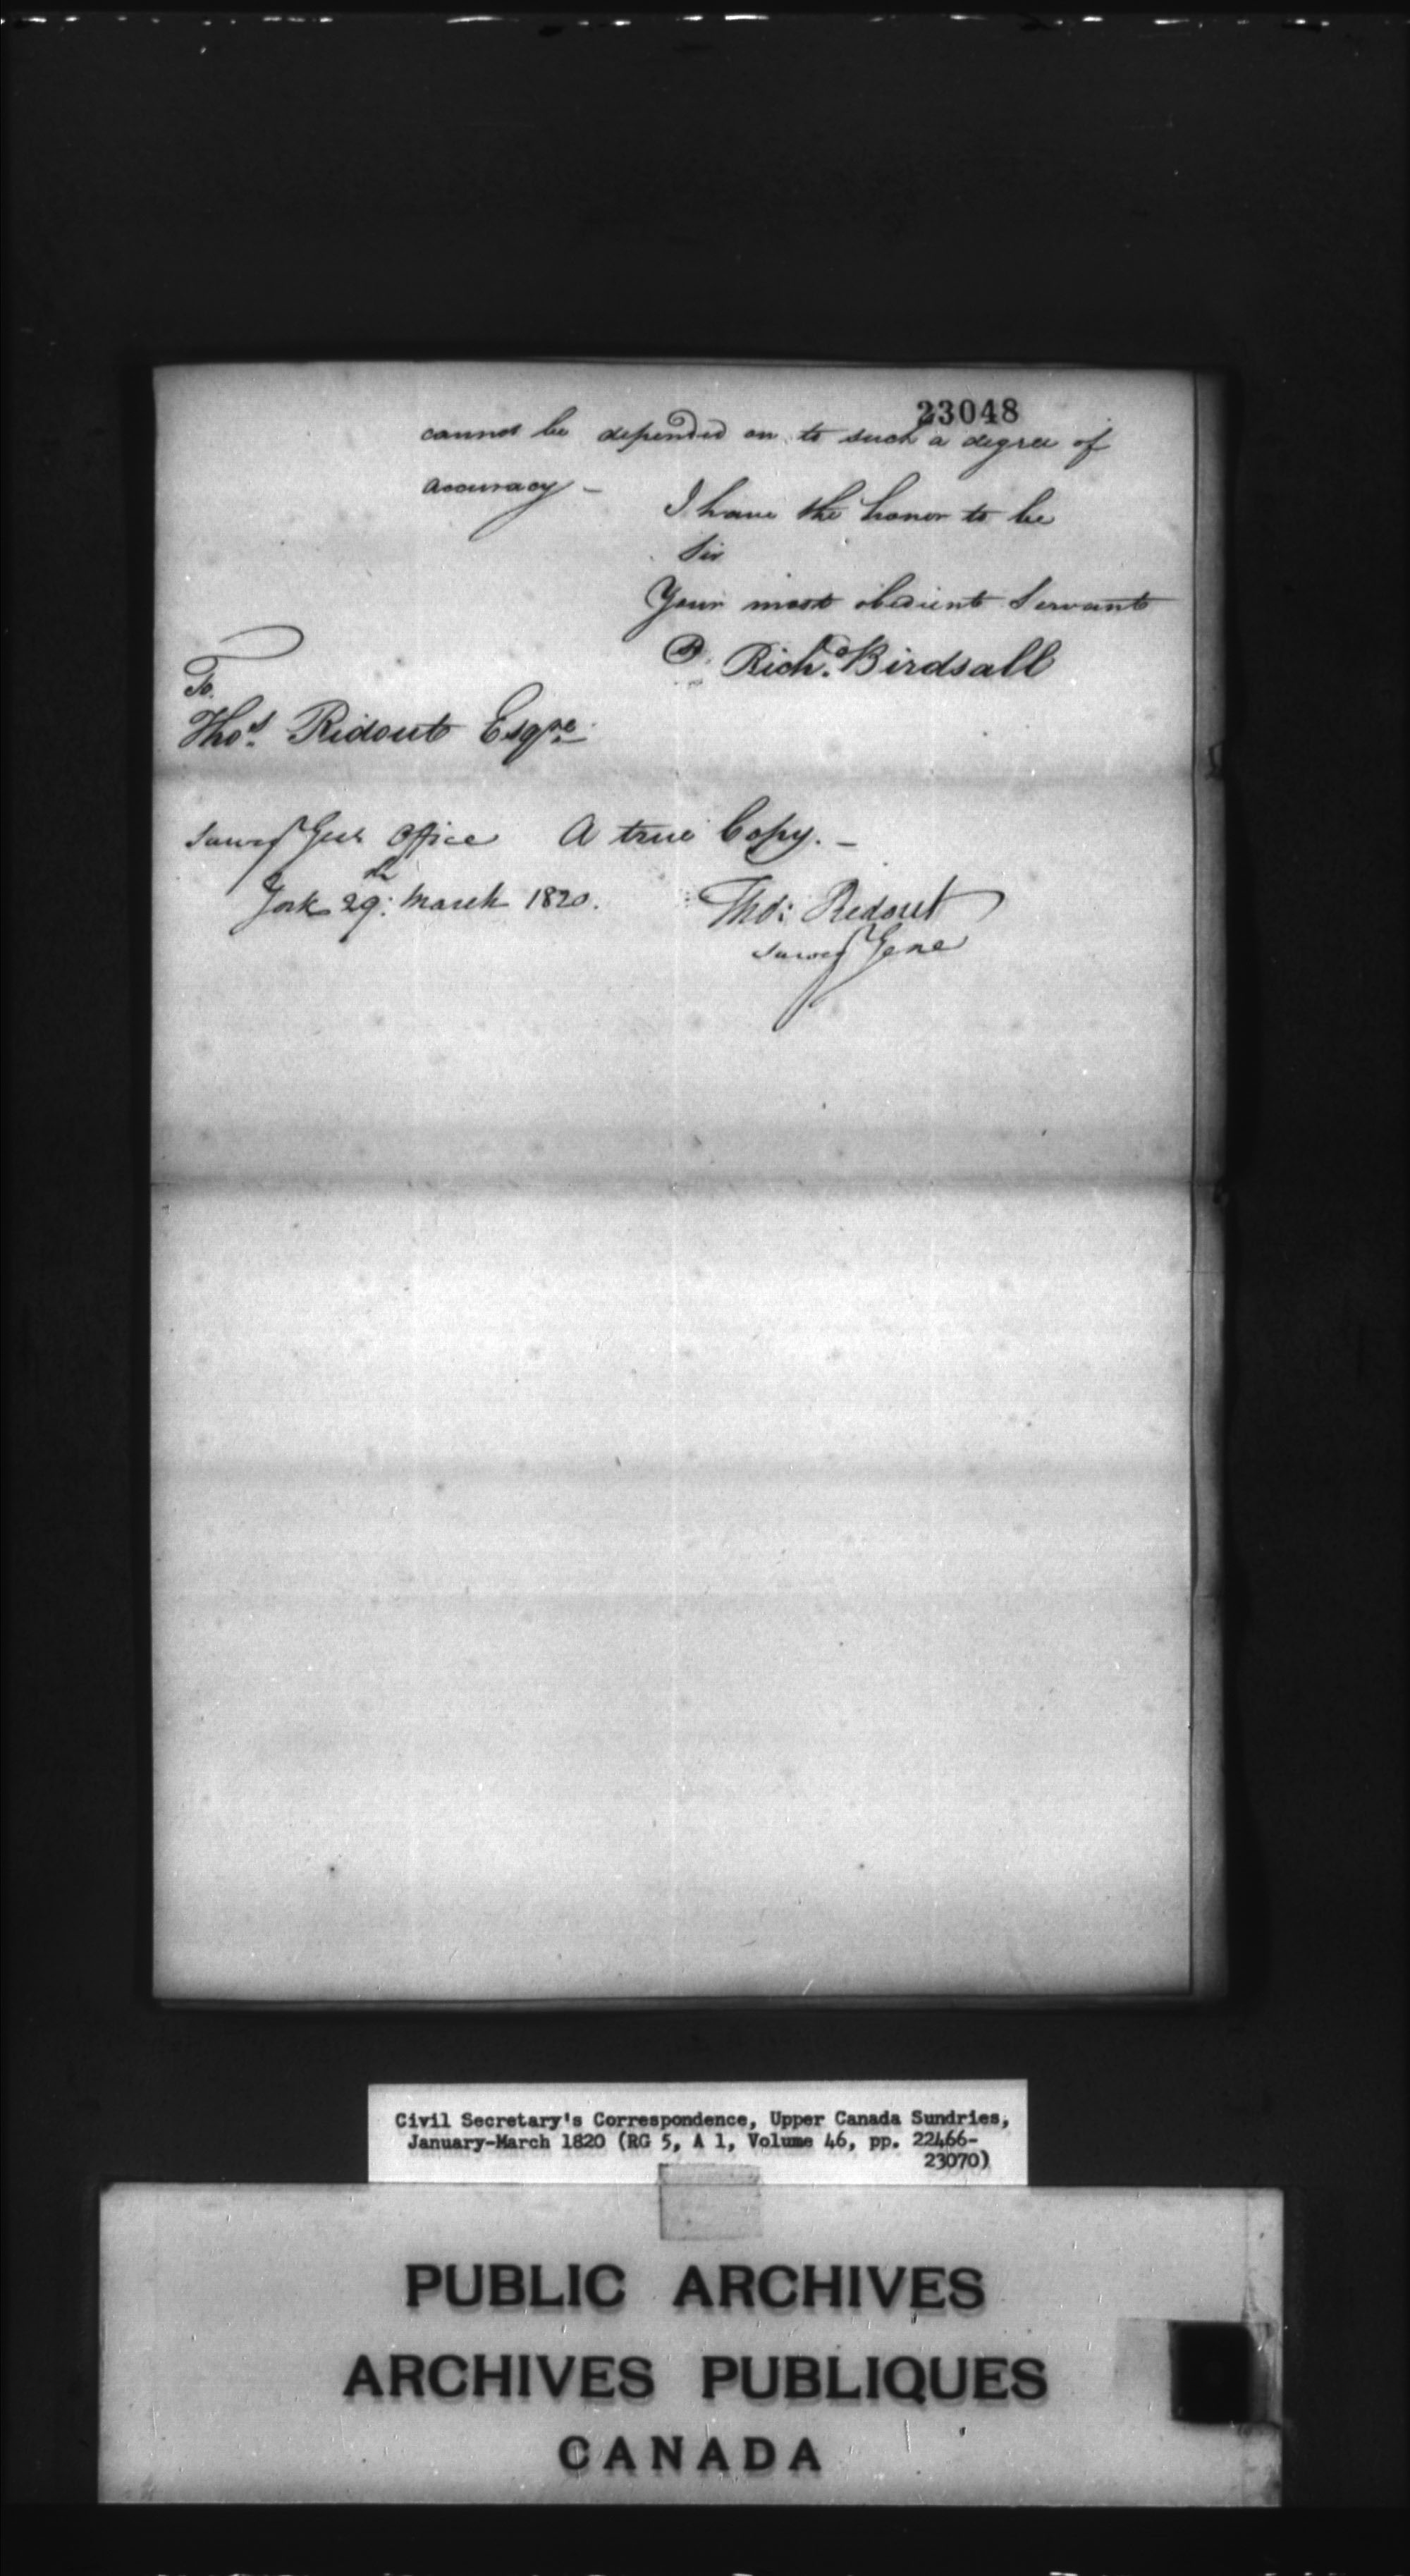 23048
cannot be depended on to such a degree of
accuracy –
I have the honor to be
Sir
Your most obedient Servant
Richd. Birdsall
To
Thos. Ridout Esqre.
Survey Genls Office A true Copy. –
York 29th: March 1820.
Tho: Ridout
Survey Gene
Civil Secretary's Correspondence, Upper Canada Sundries,
January-March 1820 (RG 5, A 1, Volume 46, pp. 22466-
23070)
PUBLIC ARCHIVES
ARCHIVES PUBLIQUES
CANADA